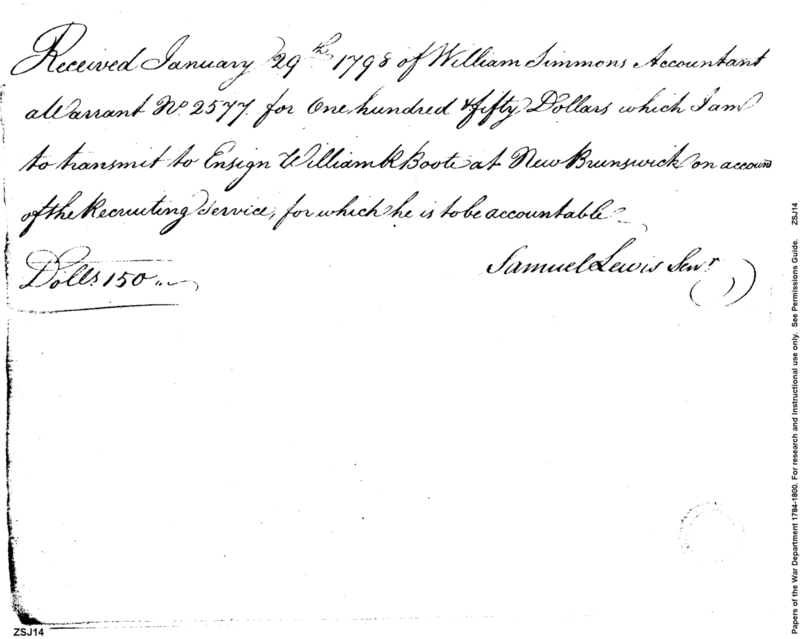 Received January 29th 1798 of William Simmons Accountant
a Warrant No. 2577 for One hundred & fifty Dollars which I am
to transmit to Ensign William R Boote at New Brunswick on account
of the Recruiting service, for which he is to be accountable
Dolls. 150..
Samuel Lewis Senr.
Papers of the War Department 1784-1800. For research and instructional use only. See Permissions Guide. ZSJ14
ZSJ14